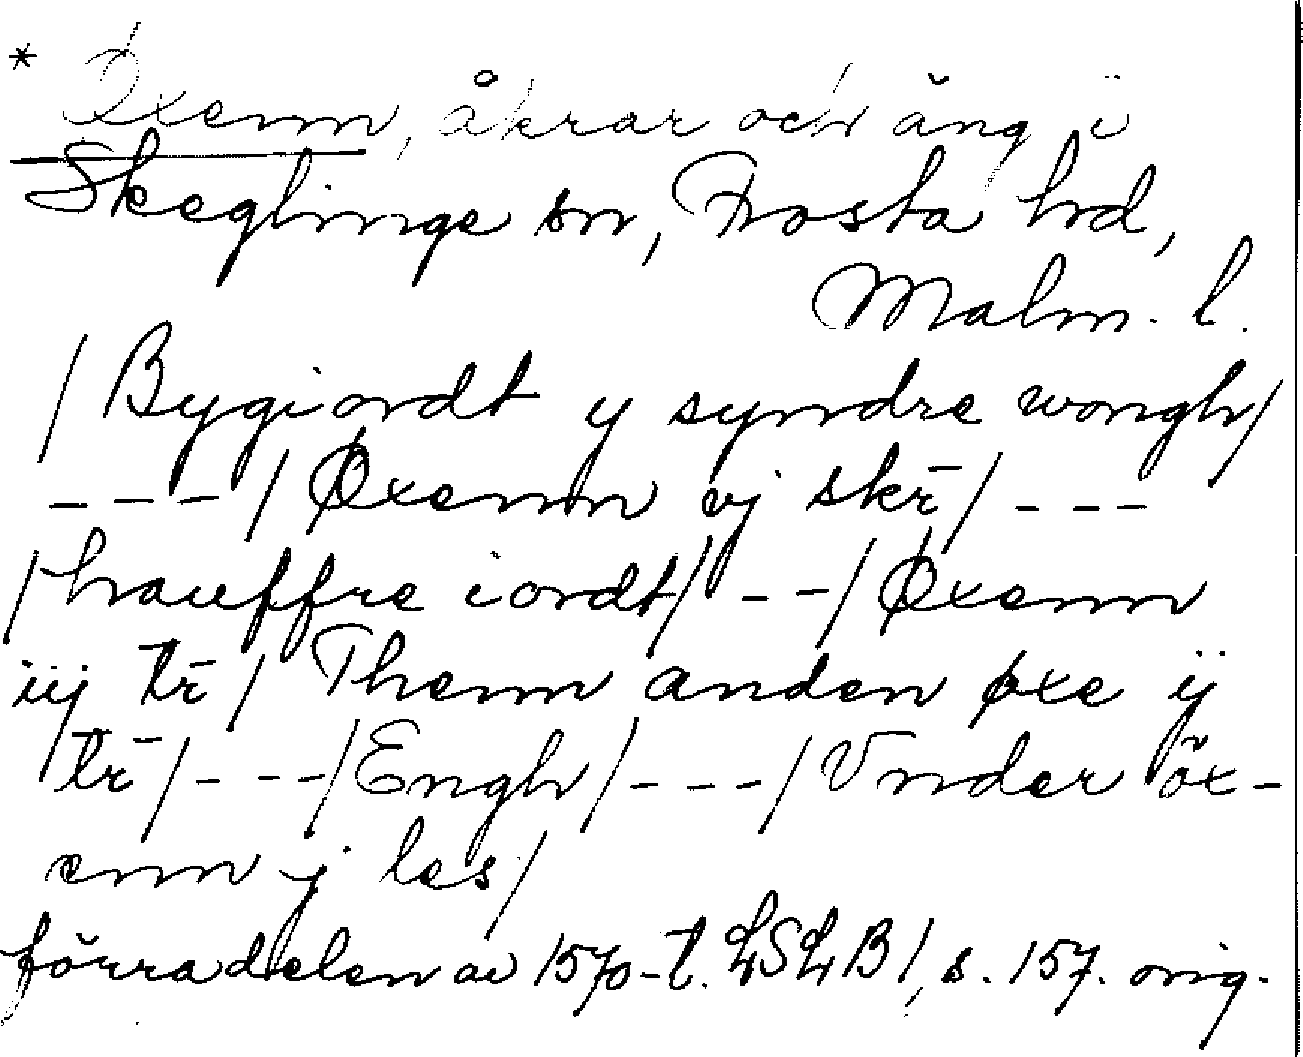 * Øxenn, åkrar och äng i
Skeglinge sn, Frosta hd,
Malm. l.
/ Bygiordt y syndre wongh/
---/ Øxenn vj skr̄/ ---
/hauffre iordt/ --/ Øxenn
iij tr̄ / Thenn anden øxe ij
tr̄/---/Engh/---/Vnder öx-
enn j les/
förra delen av 1570-t. LSLB 1, s. 157. orig.